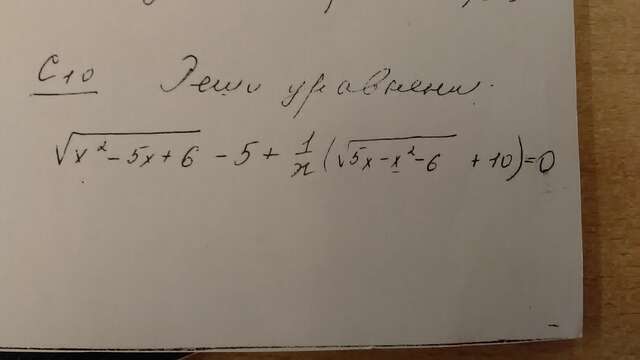 С10 Реши уравнени.
√(x² - 5x + 6) - 5 + 1/x (√(5x - x² - 6) + 10) = 0